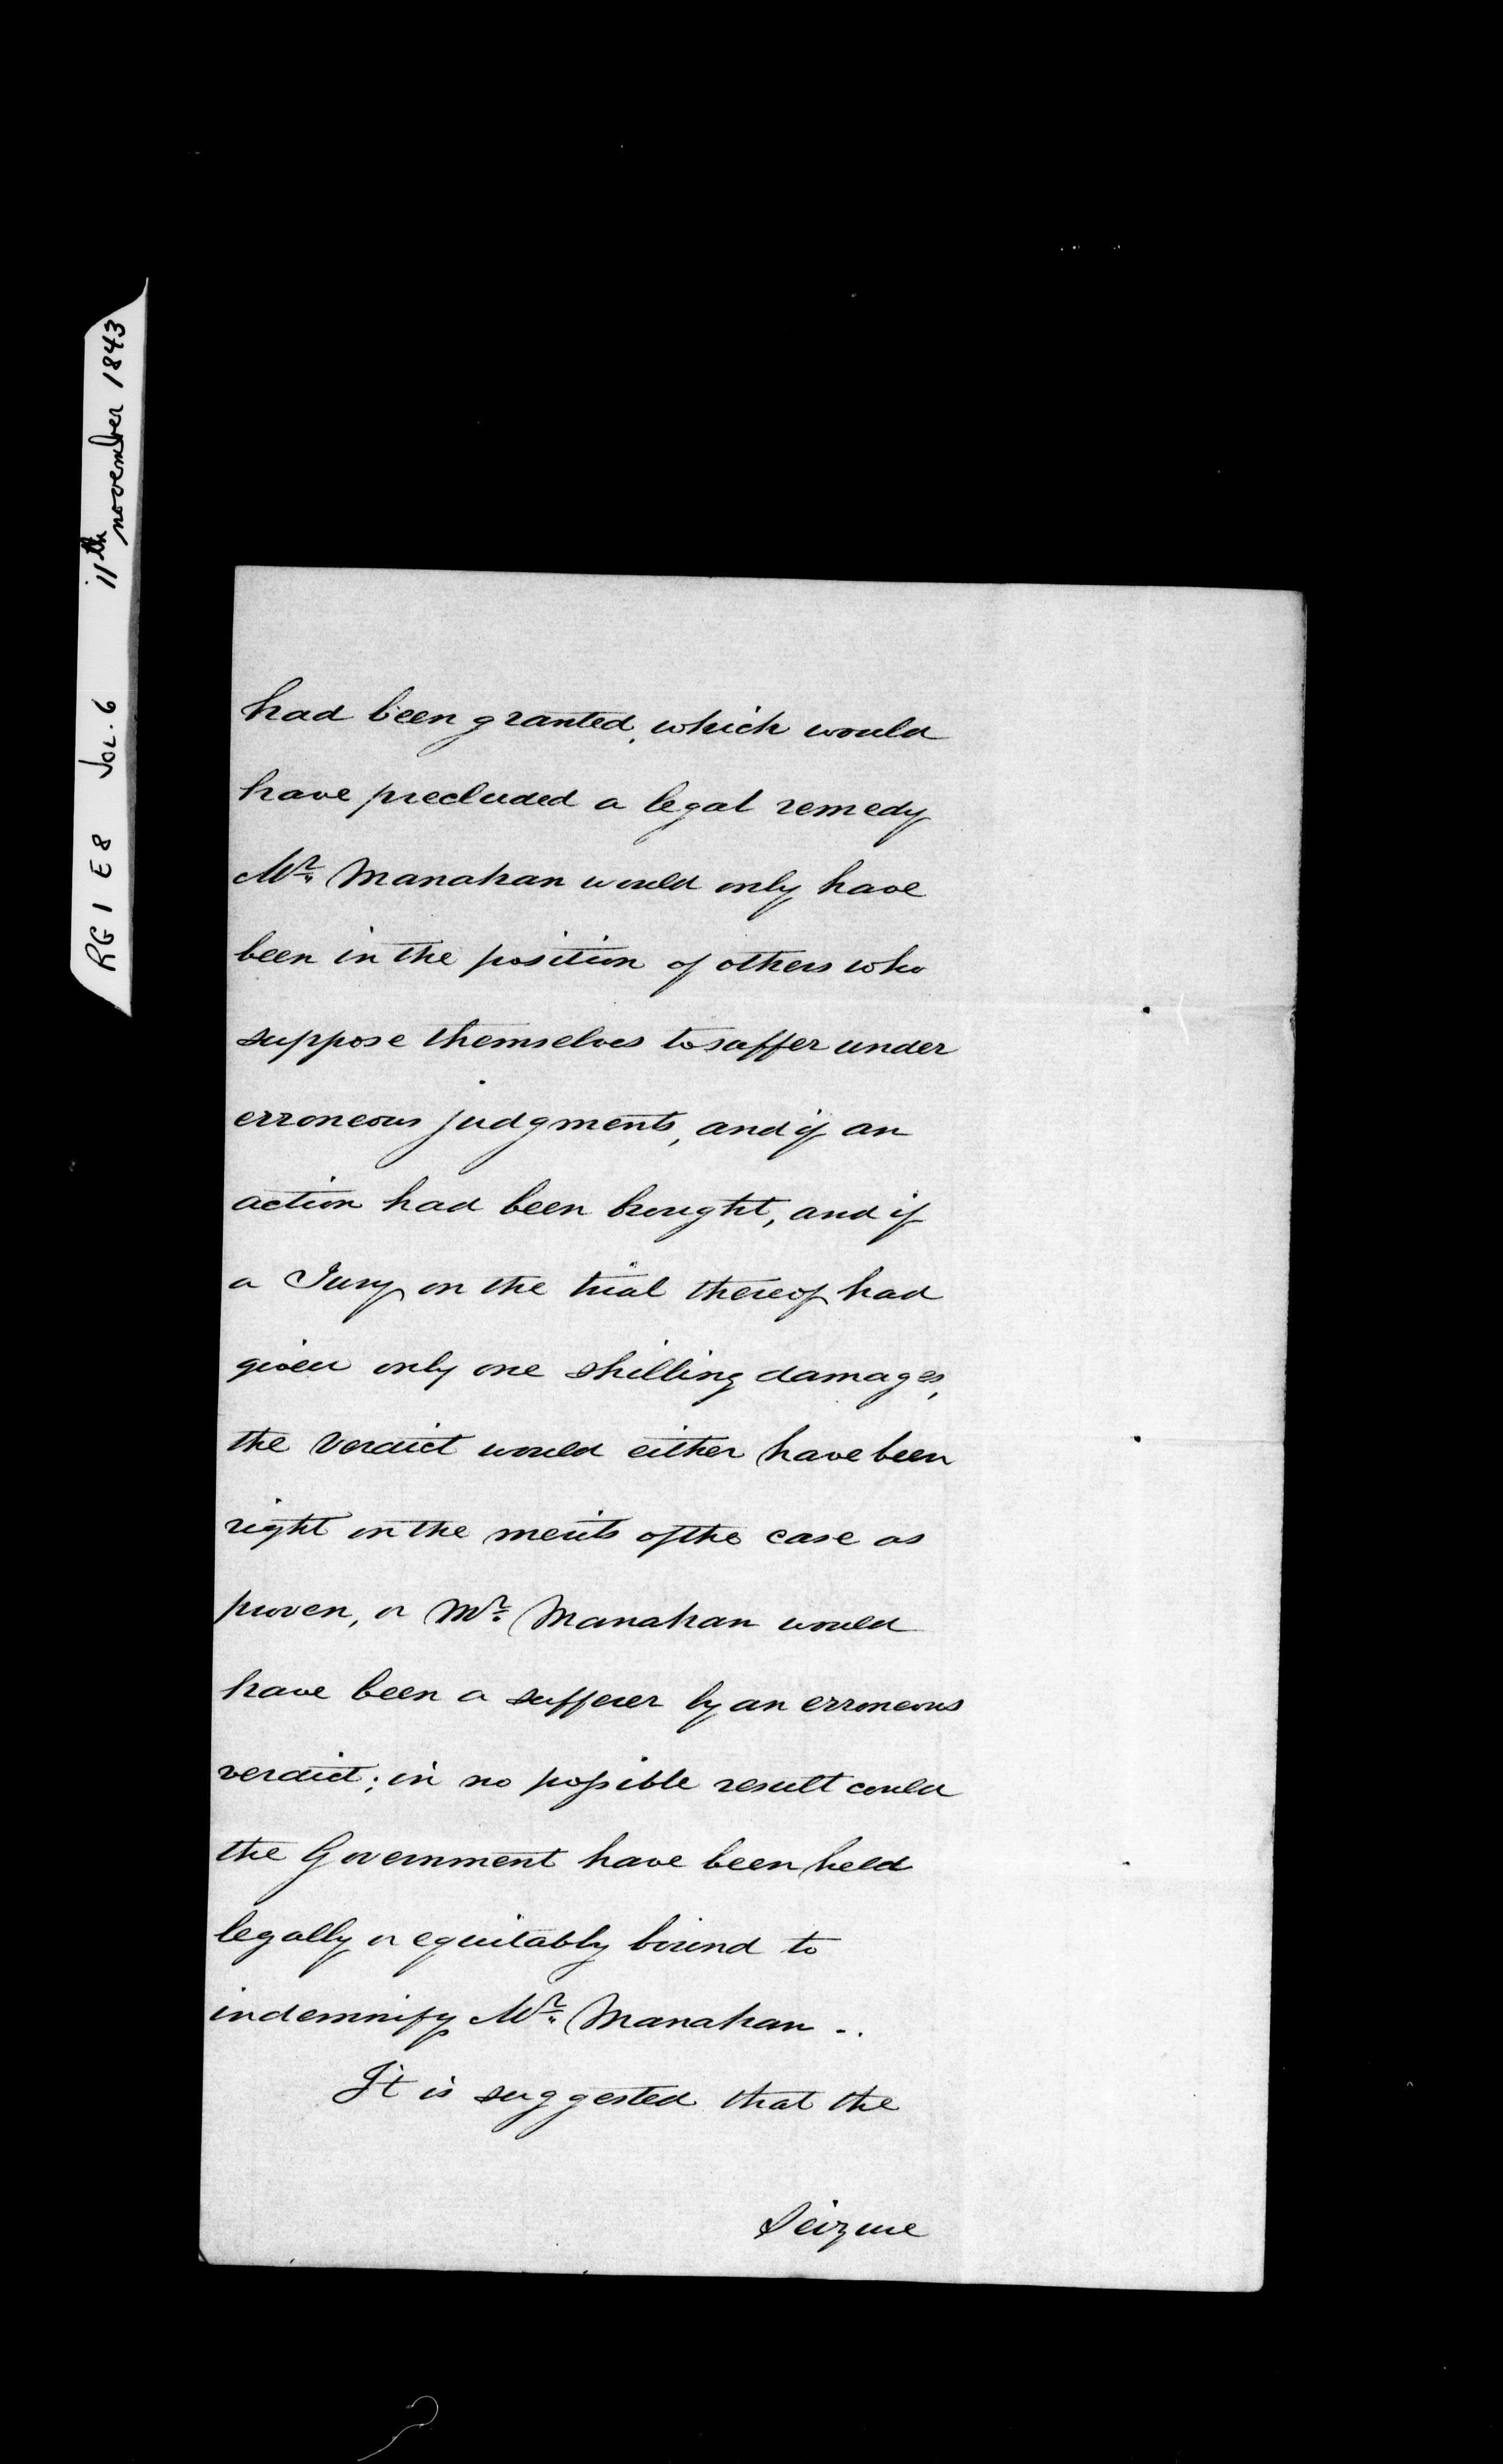 RG 1 E8 Vol. 6 11th november 1843
had been granted, which would
have precluded a legal remedy
Mr. Manahan would only have
been in the position of others who
suppose themselves to suffer under
erroneous judgments, and if an
action had been brought, and if
a Jury on the trial thereof had
given only one shilling damages,
the Verdict would either have been
right on the merits of the case as
proven, or Mr. Manahan would
have been a sufferer by an erroneous
verdict; in no possible result could
the Government have been held
legally or equitably bound to
indemnify Mr. Manahan -.
It is suggested that the
Seizure